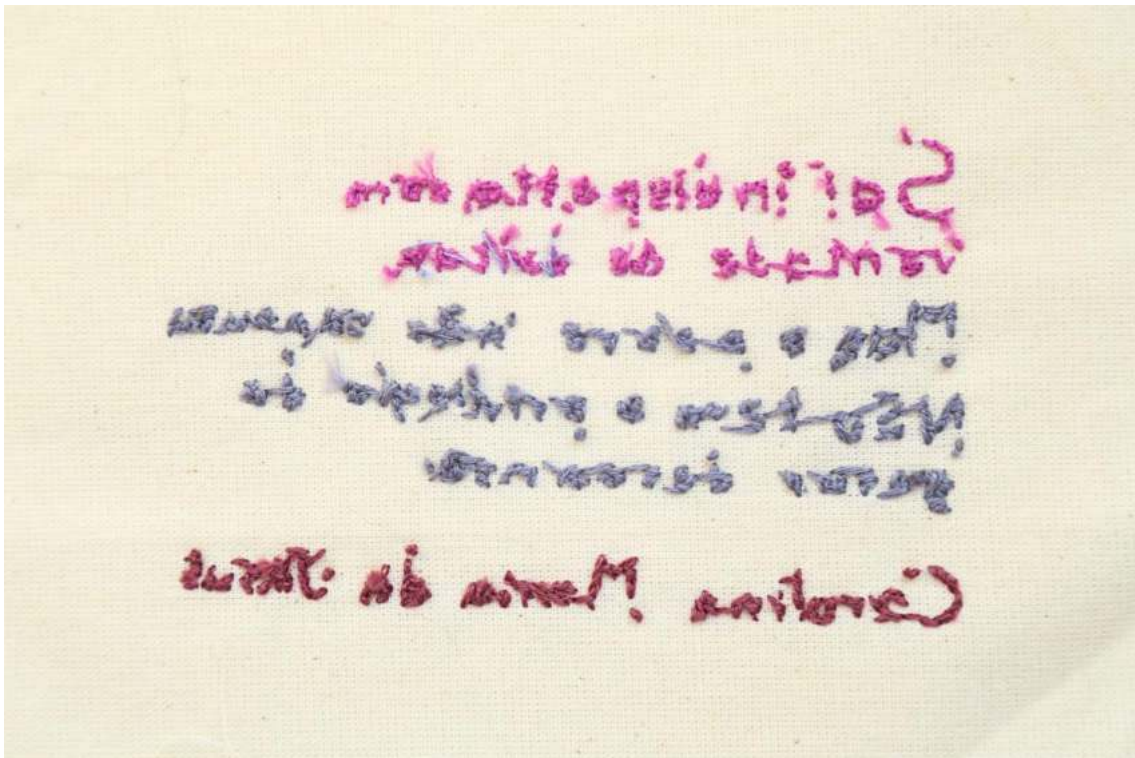 Saí indisposta, com
vontade de deitar.
Mas, o pobre não repousa.
Não tem o previlegio de
gosar descanço.
Carolina Maria de Jesus